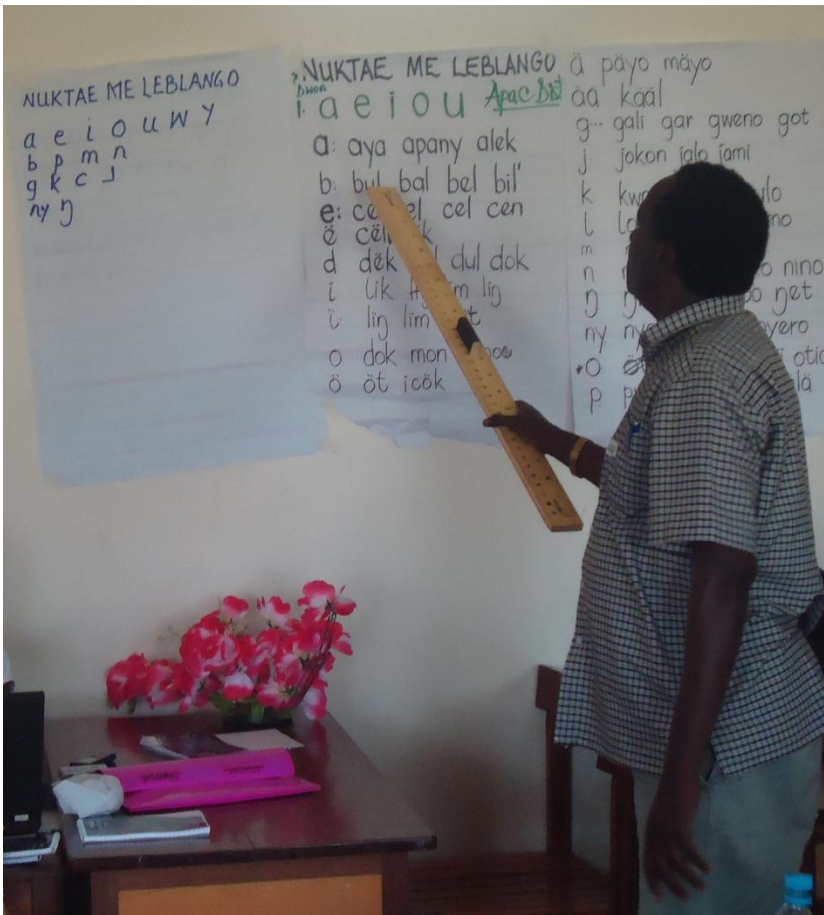 NUKTAE ME LEBLANGO
a e i o u w y
b p m n
g k c J
ny ŋ
NUKTAE ME LEBLANGO
DWON
1. a e i o u Apac Dist
a: aya apany alek
b: bul bal bel bil'
e: cel cen
ë
d dëk dul dok
i lik liŋ
ï liŋ lim
o dok mon
ö öt icök
ä päyo mäyo
ää kääl
g... gali gar gweno got
j jokon jalo jami
k
l
m
n nino
ŋ ŋet
ny
o
p